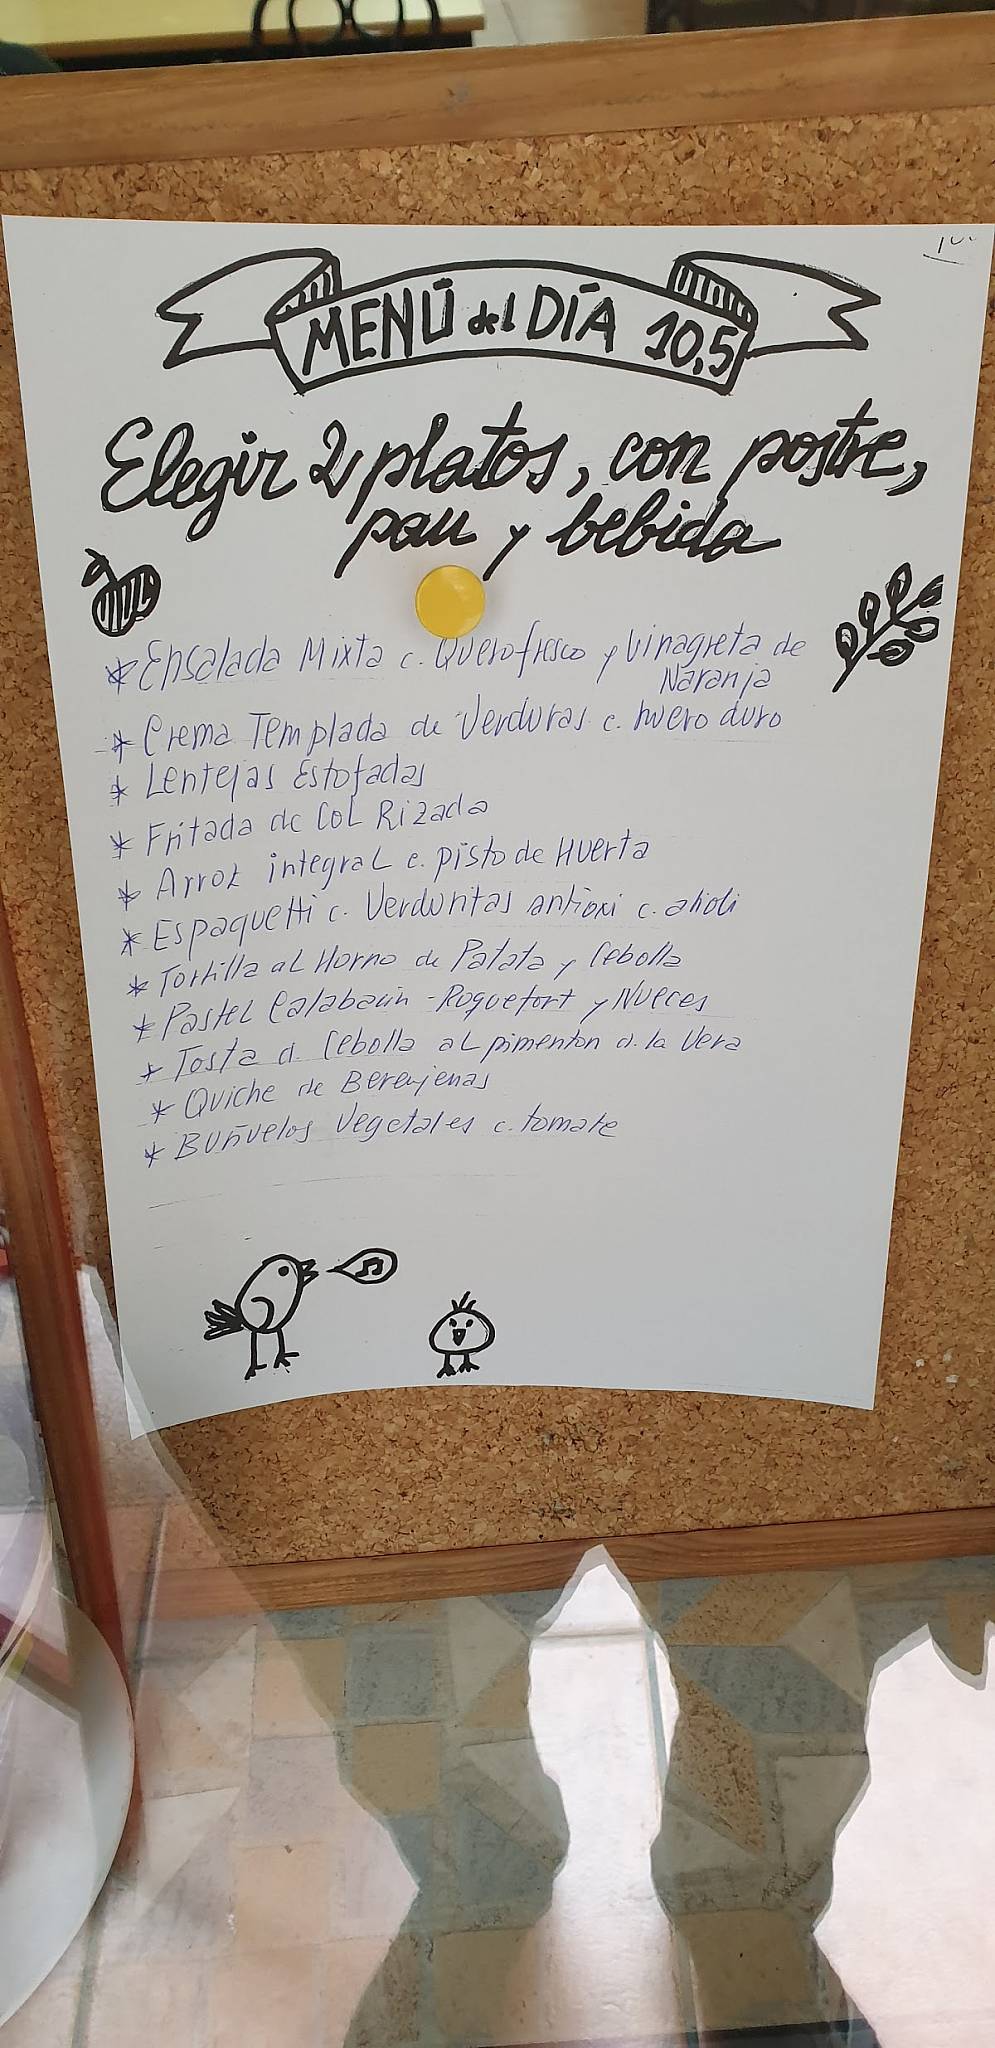 MENÚ del DÍA 10,5
Elegir 2 platos, con postre,
pan y bebida
* Ensalada Mixta c. Quesofresco y Vinagreta de
Naranja
* Crema Templada de Verduras c. huevo duro
* Lentejas Estofadas
* Fritada de Col Rizada
* Arroz integral c. pisto de Huerta
* Espaguetti c. Verduritas c. alioli
* Tortilla al Horno de Patata y Cebolla
* Pastel Calabacin - Roquefort y Nueces
* Tosta d. Cebolla al pimenton d. la Vera
* Quiche de Berenjenas
* Buñuelos Vegetales c. tomate